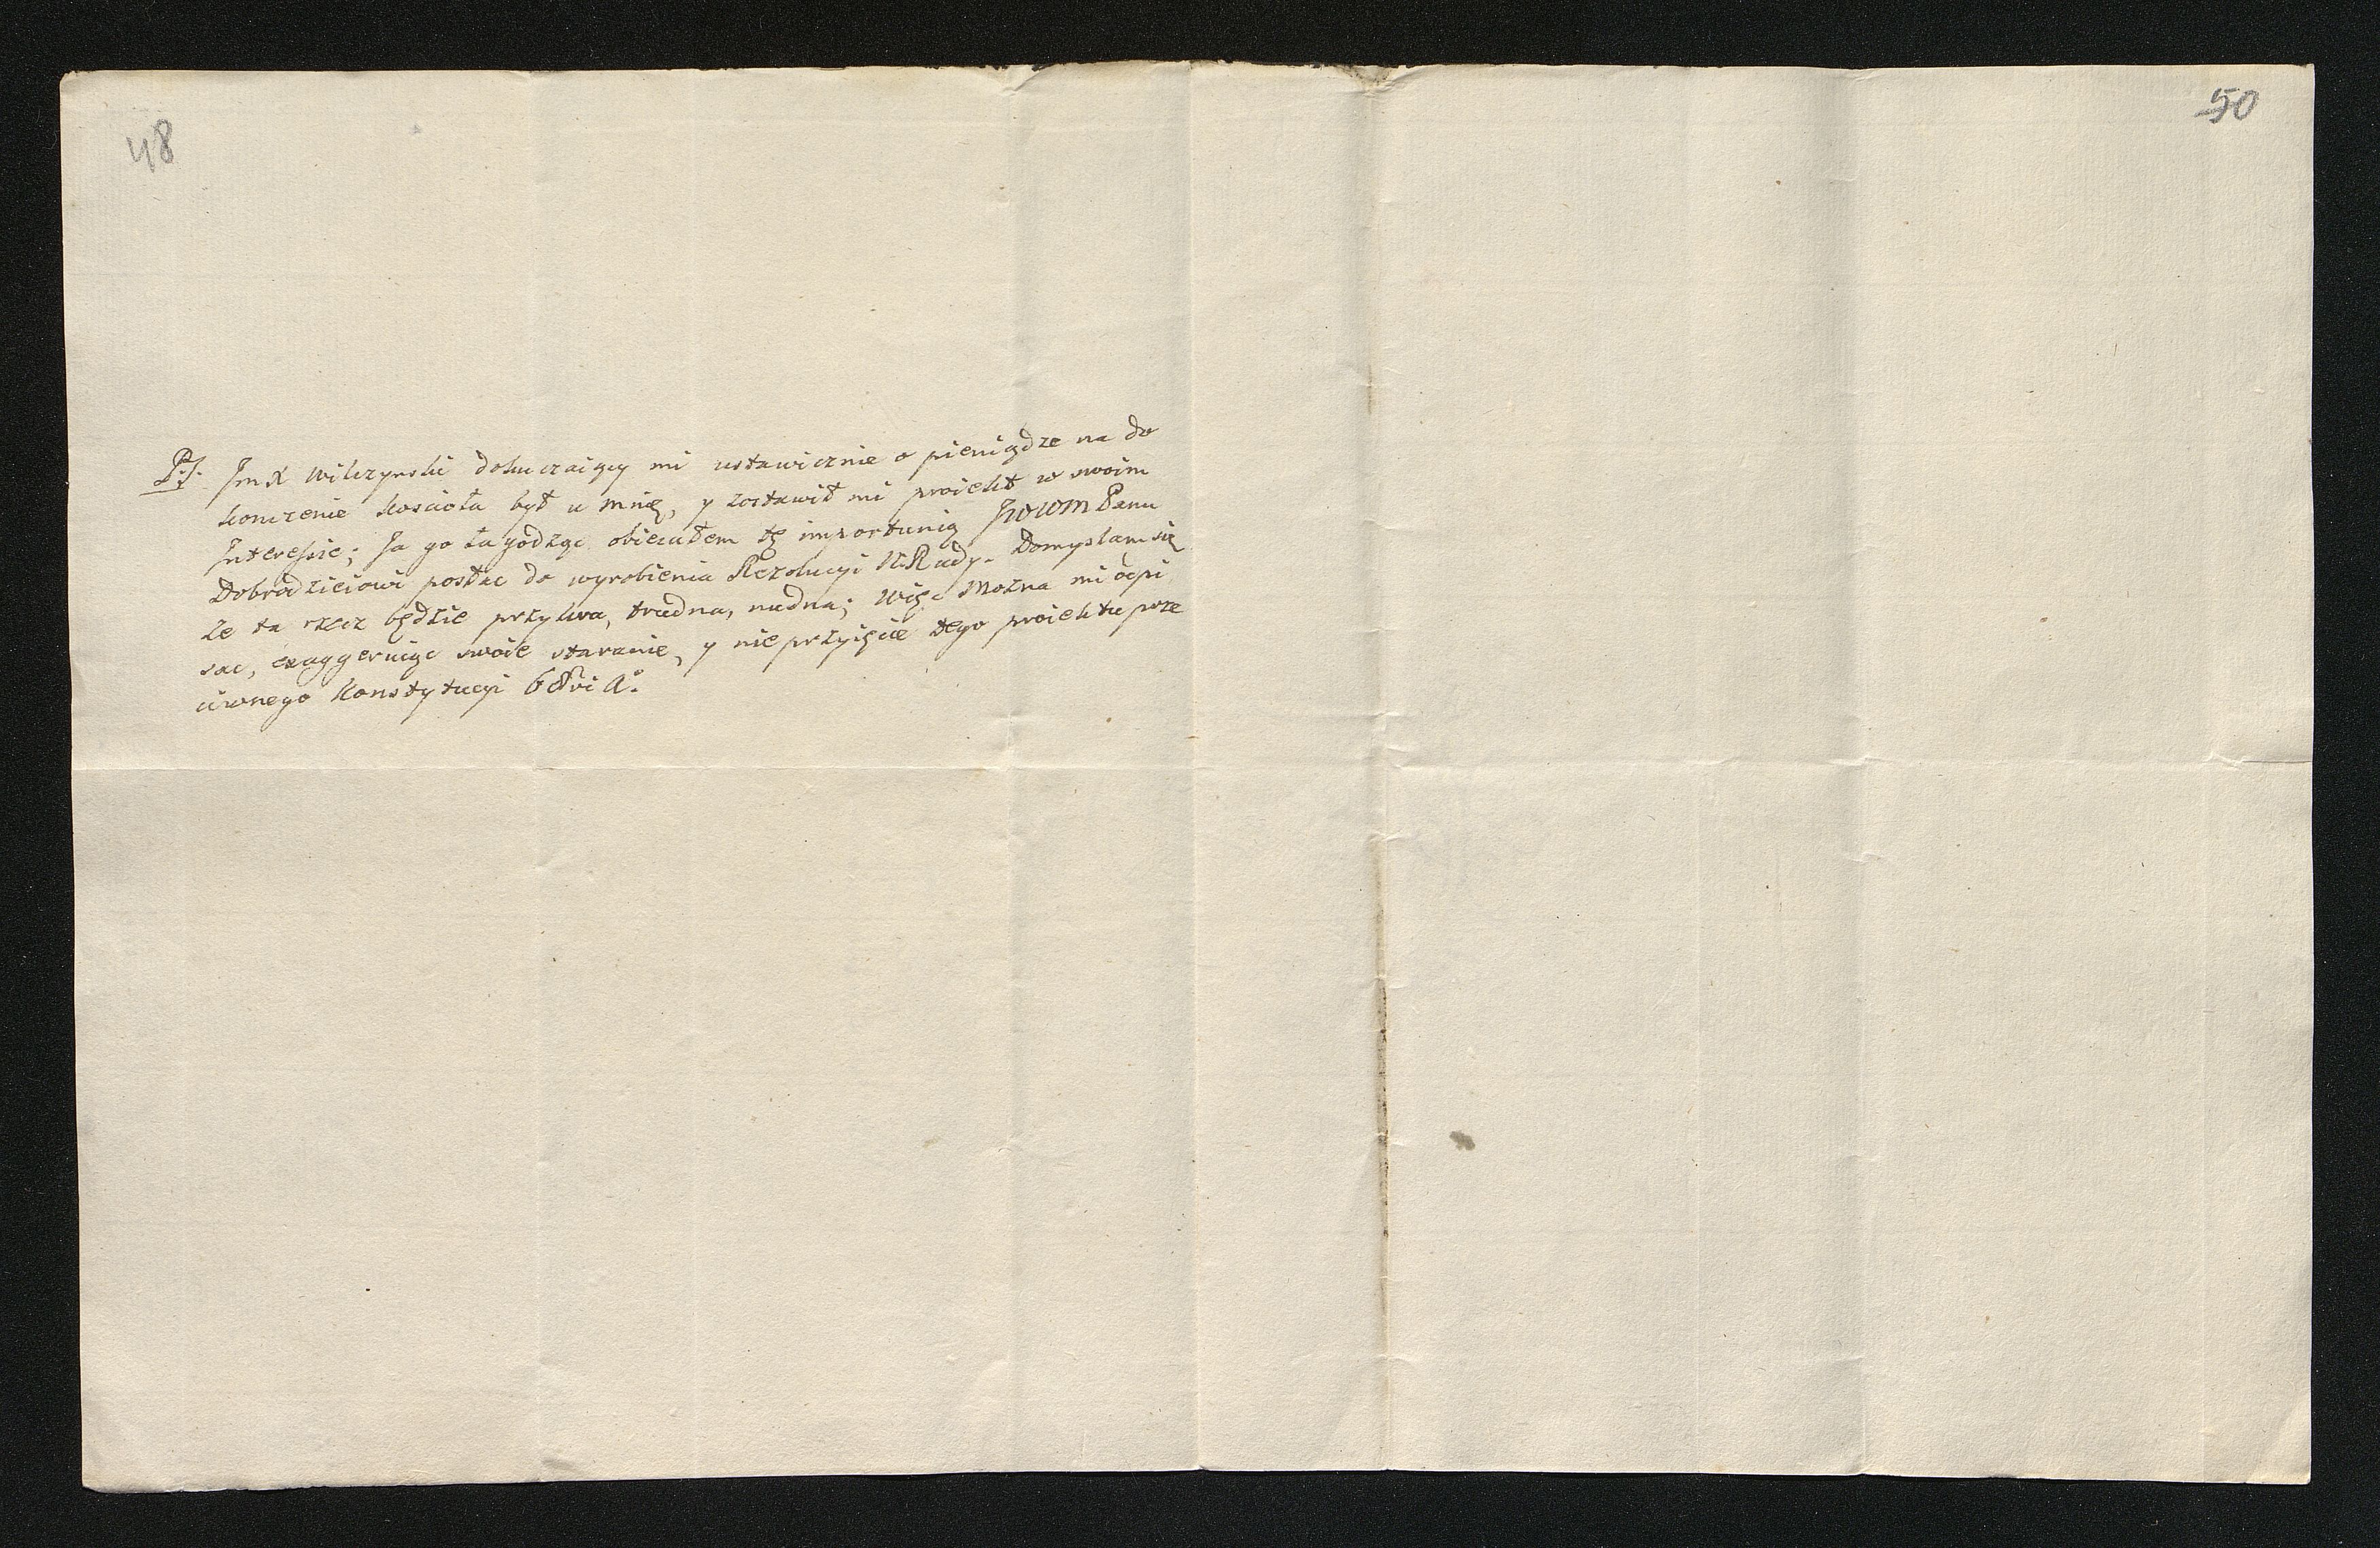 48
50
P.S. Jmć X Wilczynski dokuczaiący mi ustawicznie o pieniądze na do
konczenie koscioła był u mnię, y zostawił mi proiekt w swoim
Interessie; Ja go łagodząc obiecałem tę importunią JWWM Panu
Dobrodzieiowi posłac do wyrobienia Rezolucyi N. Rady. Domyslam się
ze ta rzecz będzie przykra, trudna, nudna; więc Mozna mi odpi
sac, exaggeruiąc swoie staranie, y nieprzyięcie tego proiektu prze
ciwnego Konstytucyi